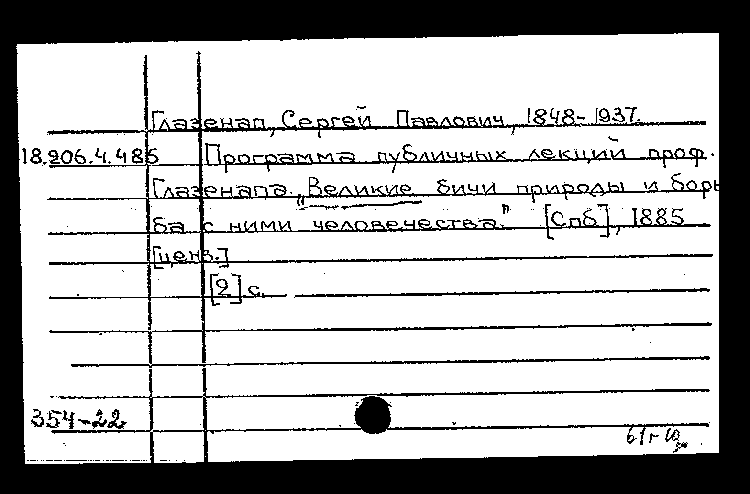 Глазенап, Сергей Павлович, 1848-1937.
18.206.4.485 Программа публичных лекций проф.
Глазенапа „Великие бичи природы и борь
ба с ними человечества." [Спб], 1885
[ценз.]
[2] с.
354-22